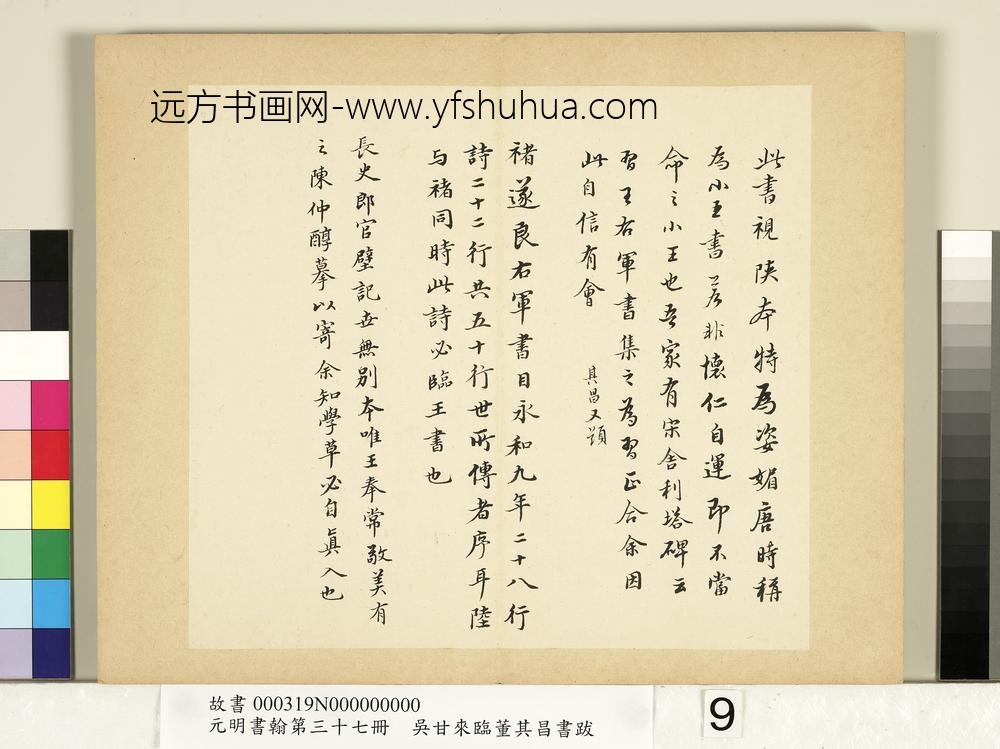 远方书画网-www.yfshuhua.com
此書視陝本特為姿媚唐時稱
為小王書若非懷仁自運即不當
命之小王也吾家有宋舍利塔碑云
習王右軍書集之為習正合余因
此自信有會 其昌又題
褚遂良右軍書目永和九年二十八行
詩二十二行共五十行世所傳者序耳陸
与褚同時此詩必臨王書也
長史郎官壁記世無別本唯王奉常敬美有
之陳仲醇摹以寄余知學草必自真入也
故書 000319N000000000
元明書翰第三十七冊 吳甘來臨董其昌書跋
9